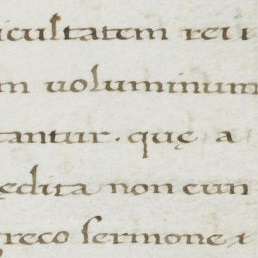 icultatem rei i
m uoluminum
tantur. quę a
ędita non eun
greco sermone &